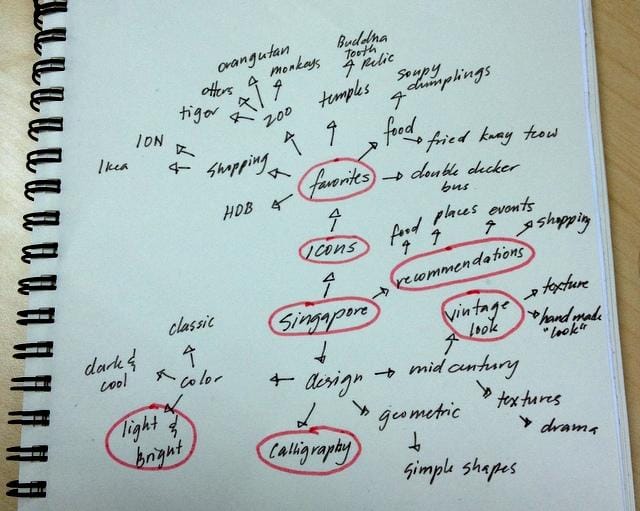 Buddha
Tooth
Relic
orangutan
monkeys
otters
tiger
zoo
temples
soupy
dumplings
food
fried kway teow
ION
Ikea
shopping
favorites
double decker
bus
HDB
food places events
shopping
icons
recommendations
Singapore
vintage
look
texture
hand made
"look"
classic
dark &
cool
color
design
mid century
textures
drama
light &
bright
geometric
calligraphy
simple shapes